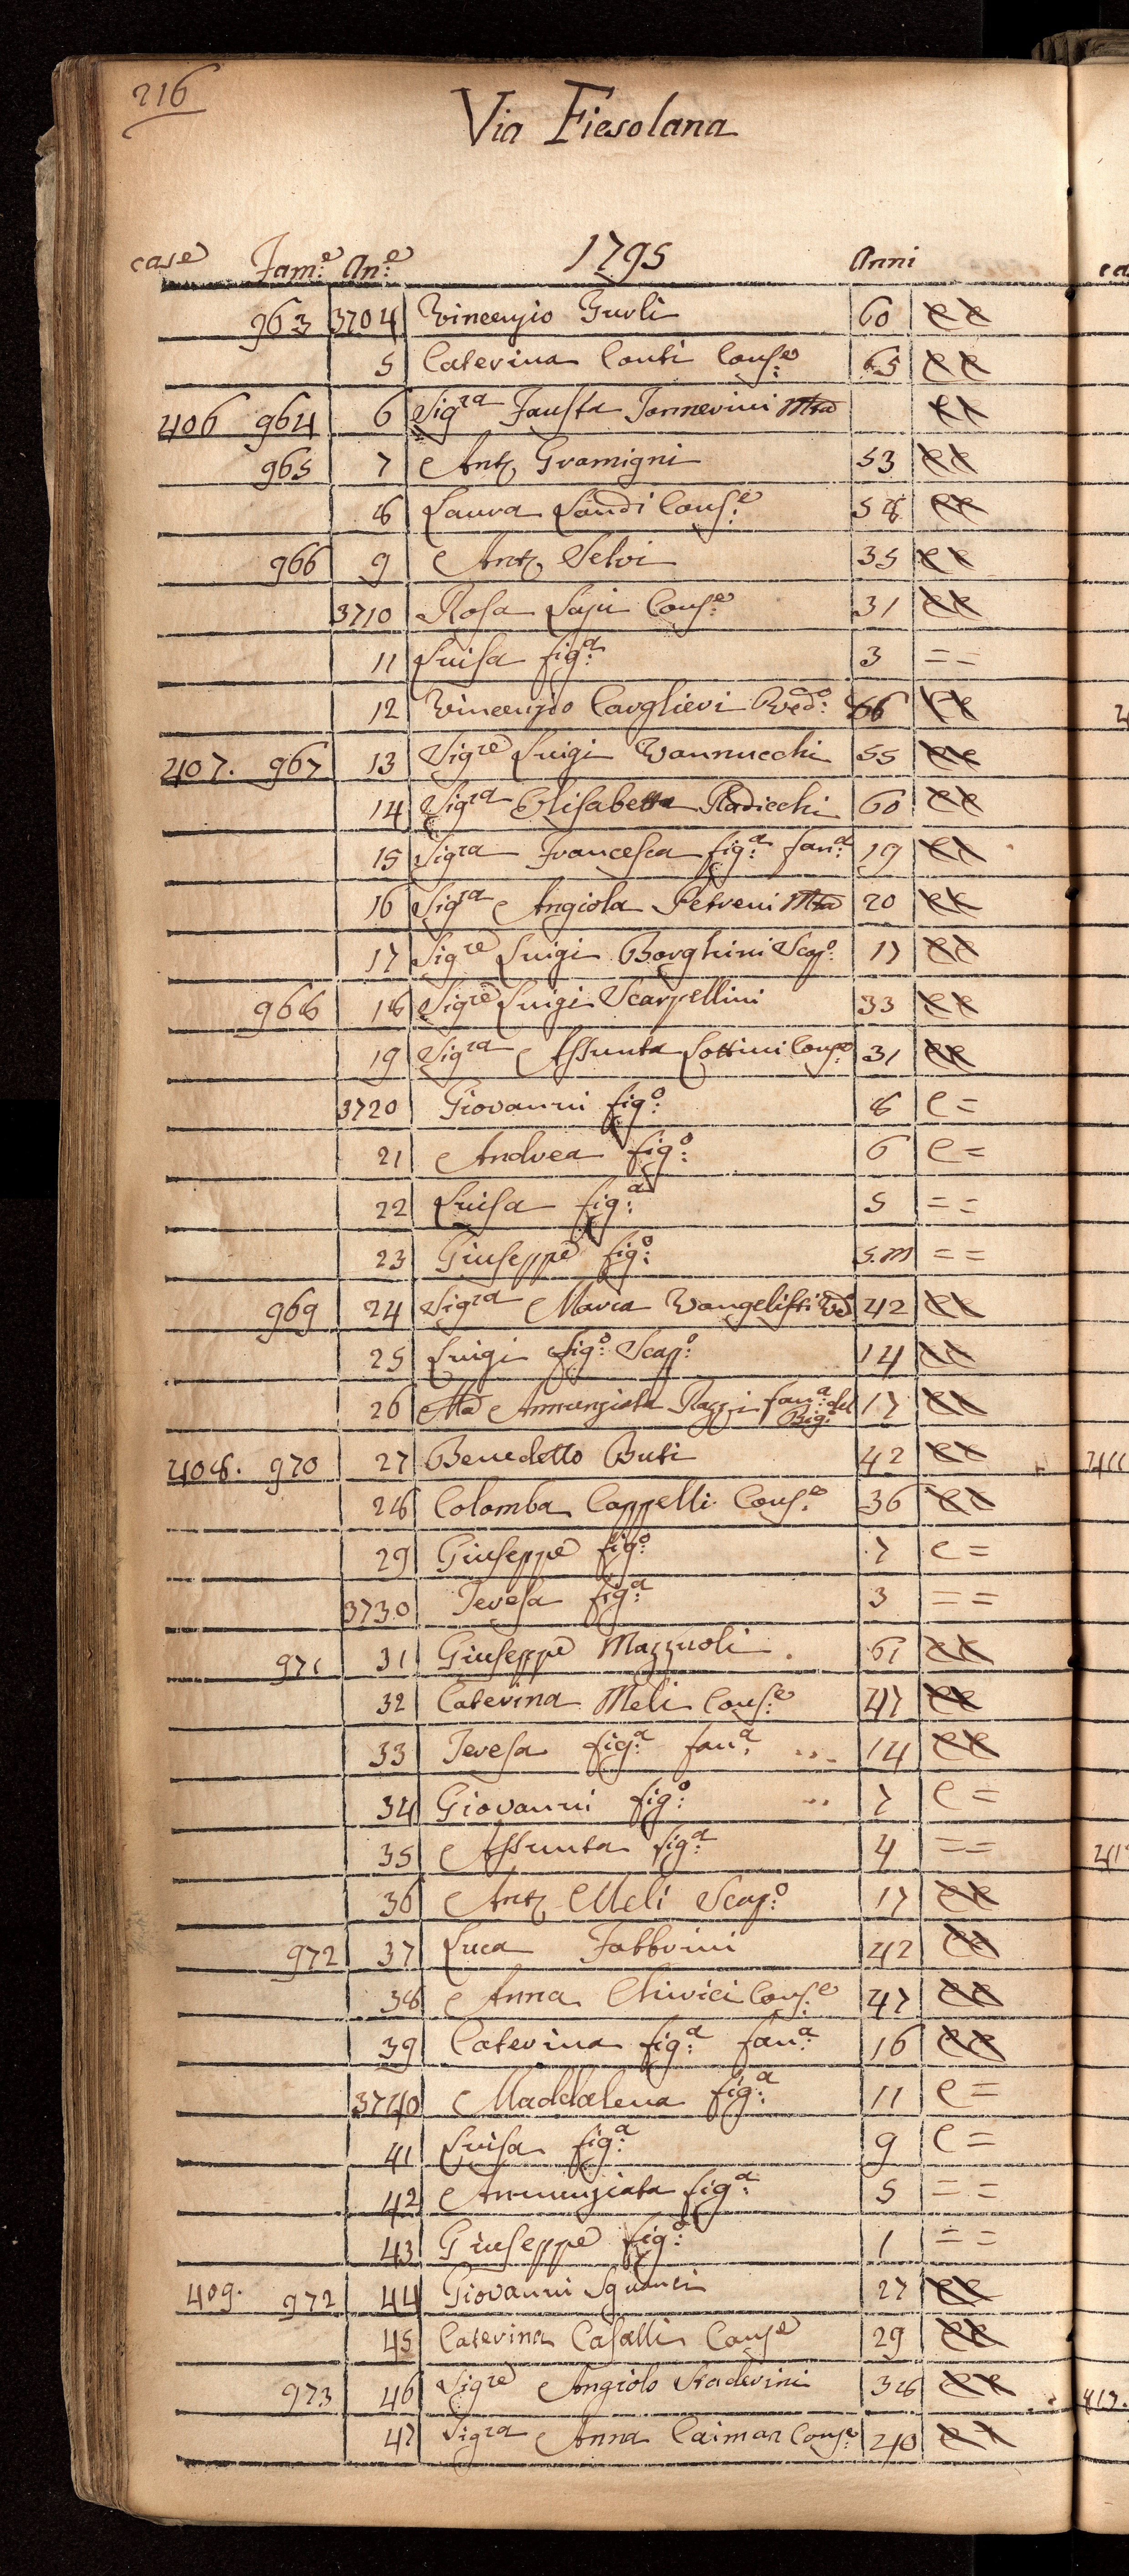 216
Via Fiesolana
case Fam:e An:e 1795 Anni
963 3704 Vincenzio Gurli 60 e e
5 Caterina Conti Cons:e 65 e e
406 964 6 Sigra Fausta Jannerini Mta e e
965 7 Anto Gramigni 53 e e
8 Laura Landi Cons:e 58 e e
966 9 Anto Selvi 35 e e
3710 Rosa Lapi Cons:e 31 e e
11 Luisa fig:a 3 = =
12 Vincenzio Carglieri Ved:o 66 e e
407. 967 13 Sigre Luigi Vannucchi 55 e e
14 Sigra Elisabetta Radicchi 60 e e
15 Sigra Francesca fig:a fan:a 19 e e
16 Sigra Angiola Petreni Mta 20 e e
17 Sigre Luigi Borghini Scap:o 17 e e
968 18 Sigre Luigi Scarpellini 33 e e
19 Sigra Assunta Lottini Cons:e 31 e e
3720 Giovanni fig:o 8 e =
21 Andrea fig:o 6 e =
22 Luisa fig:a 5 = =
23 Giuseppe fig:o 5.m = =
969 24 Sigra Maria Vangelisti Va 42 e e
25 Luigi fig:o Scap:o 14 e e
26 Ma Annunziata Razzi fan:a del 17 e e
970 408. 27 Benedetto Buti 42 e e
28 Colomba Cappelli Cons:e 36 e e
29 Giuseppe fig:o 7 e =
3730 Teresa fig:a 3 = =
971 31 Giuseppe Mazzuoli 61 e e
32 Caterina Meli Cons:e 47 e e
33 Teresa fig:a fan:a 14 e e
34 Giovanni fig:o 7 e =
35 Assunta fig:a 4 = =
36 Anto Meli Scap:o 17 e e
972 37 Luca Fabbrini 42 e e
38 Anna Chirici Cons:e 47 e e
39 Caterina fig:a fan:a 16 e e
3740 Maddalena fig:a 11 e =
41 Luisa fig:a 9 e =
42 Annunziata fig:a 5 = =
43 Giuseppe fig:o 1 = =
409. 972 44 Giovanni Sguanci 27 e e
45 Caterina Casalli Conse 29 e e
973 46 Sigre Angiolo Staderini 38 e e
47 Sigra Anna Caiman Cons:e 40 e e